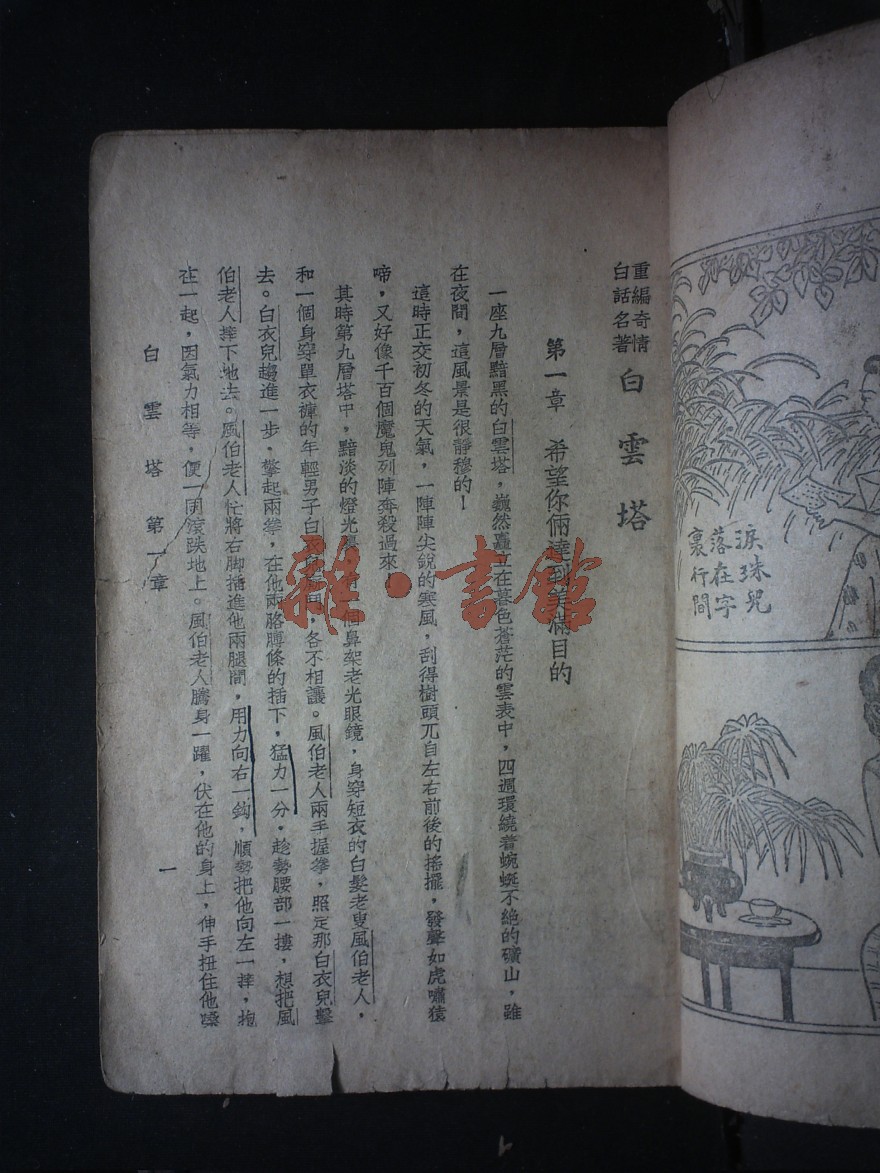 重編奇情
白話名著
白雲塔
第一章 希望你倆達到美滿目的
一座九層黯黑的白雲塔，巍然矗立在暮色蒼茫的雲表中，四週環繞着蜿蜒不絕的礦山，雖
在夜間，這風景是很靜穆的！
這時正交初冬的天氣，一陣陣尖銳的寒風，刮得樹頭兀自左右前後的搖擺，發聲如虎嘯猿
啼，又好像千百個魔鬼列陣奔殺過來！
其時第九層塔中，黯淡的燈光 一個鼻架老光眼鏡，身穿短衣的白髮老叟風伯老人，
和一個身穿單衣褲的年輕男子白衣 ，各不相讓。風伯老人兩手握拳，照定那白衣兒擊
去。白衣兒趨進一步，擎起兩拳，在他兩胳膊條的插下，猛力一分。趁勢腰部一摟，想把風
伯老人摔下地去。風伯老人忙將右脚插進他兩腿間，用力向右一鈎，順勢把他向左一摔，抱
在一起，因氣力相等，便一同滾跌地上。風伯老人騰身一躍，伏在他的身上，伸手扭住他嗓
白雲塔 第一章
一
淚珠兒
落在字
裏行間
雜·書館